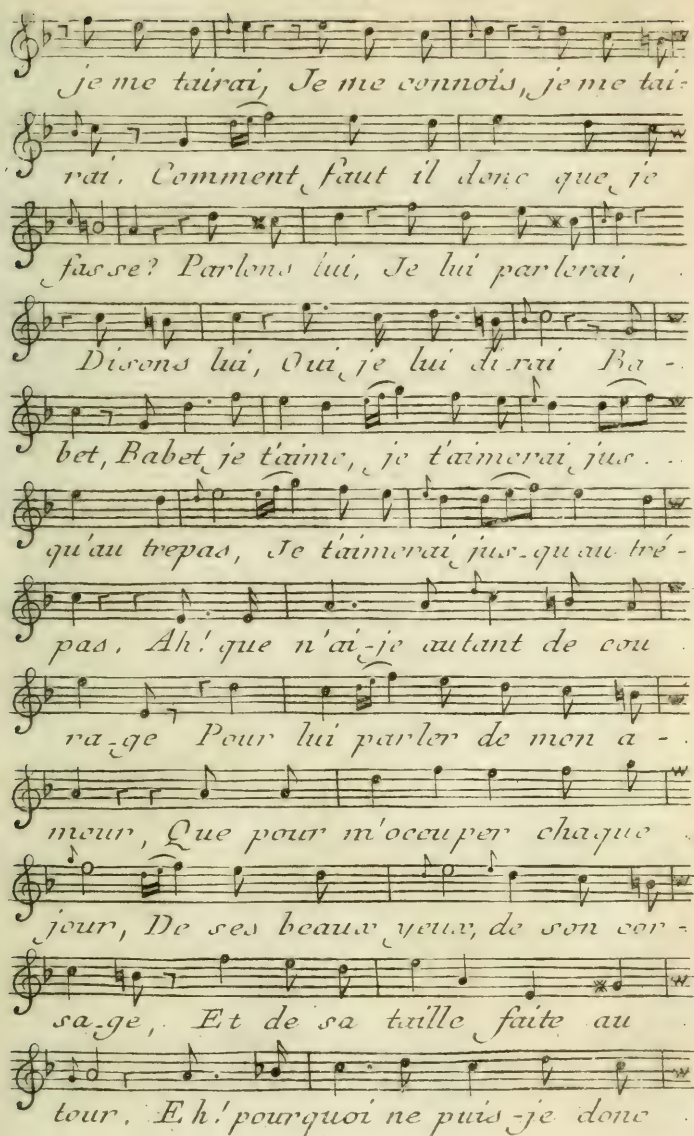 je me tairai, Je me connois, je me tai-
rai. Comment faut il donc que je
fasse? Parlons lui, Je lui parlerai,
Disons lui, Oui, je lui di-rai Ba-
bet, Babet je t'aime, je t'aimerai jus..
qu'au trepas, Je t'aimerai jus-qu'au tré-
pas. Ah! que n'ai-je autant de cou
ra-ge Pour lui parler de mon a-
mour, Que pour m'occuper chaque
jour, De ses beaux yeux, de son cor-
sa-ge, Et de sa taille faite au
tour. Eh! pourquoi ne puis-je donc